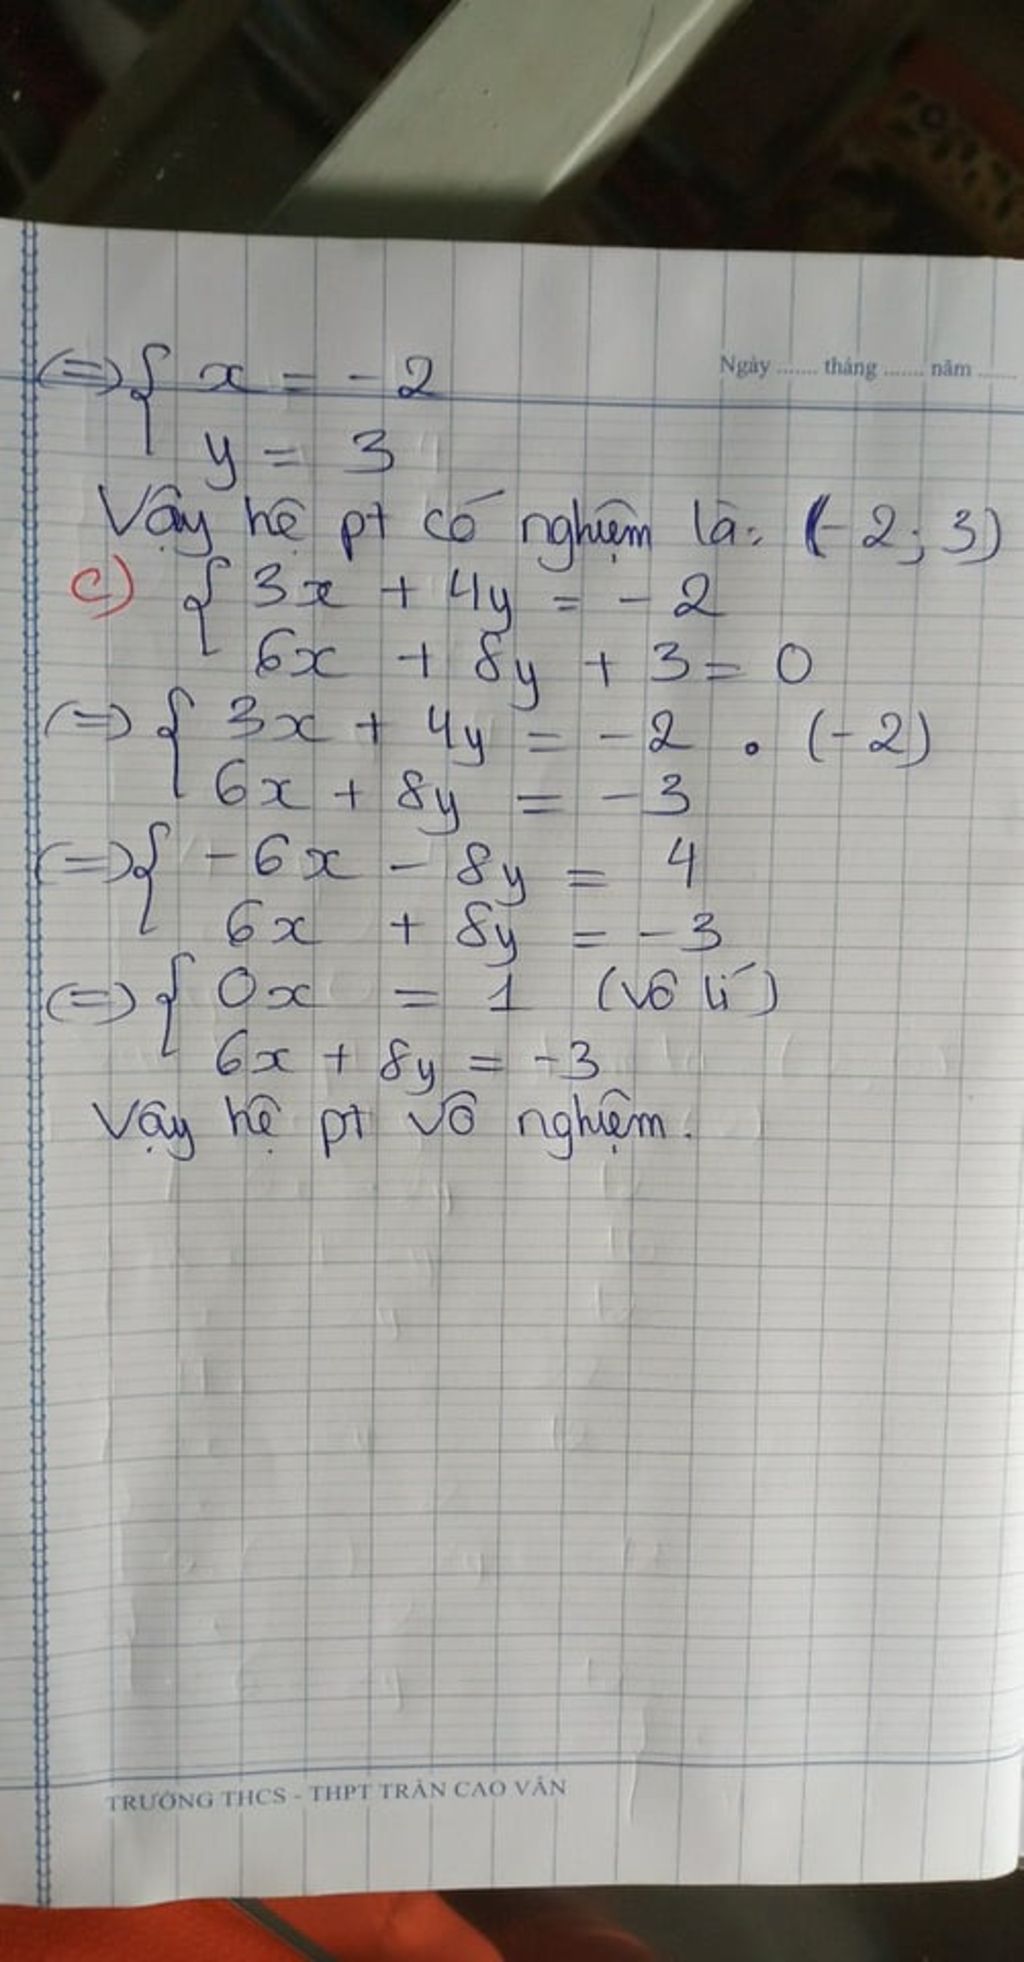 Ngày ....... tháng ....... năm ......
(=) { x = - 2
y = 3
Vậy hệ pt có nghiệm là: (- 2; 3)
c) { 3x + 4y = - 2
6x + 8y + 3 = 0
(=) { 3x + 4y = - 2 . (- 2)
6x + 8y = - 3
(=) { - 6x - 8y = 4
6x + 8y = - 3
(=) { 0x = 1 (vô lí)
6x + 8y = - 3
Vậy hệ pt vô nghiệm.
TRƯỜNG THCS - THPT TRẦN CAO VÂN